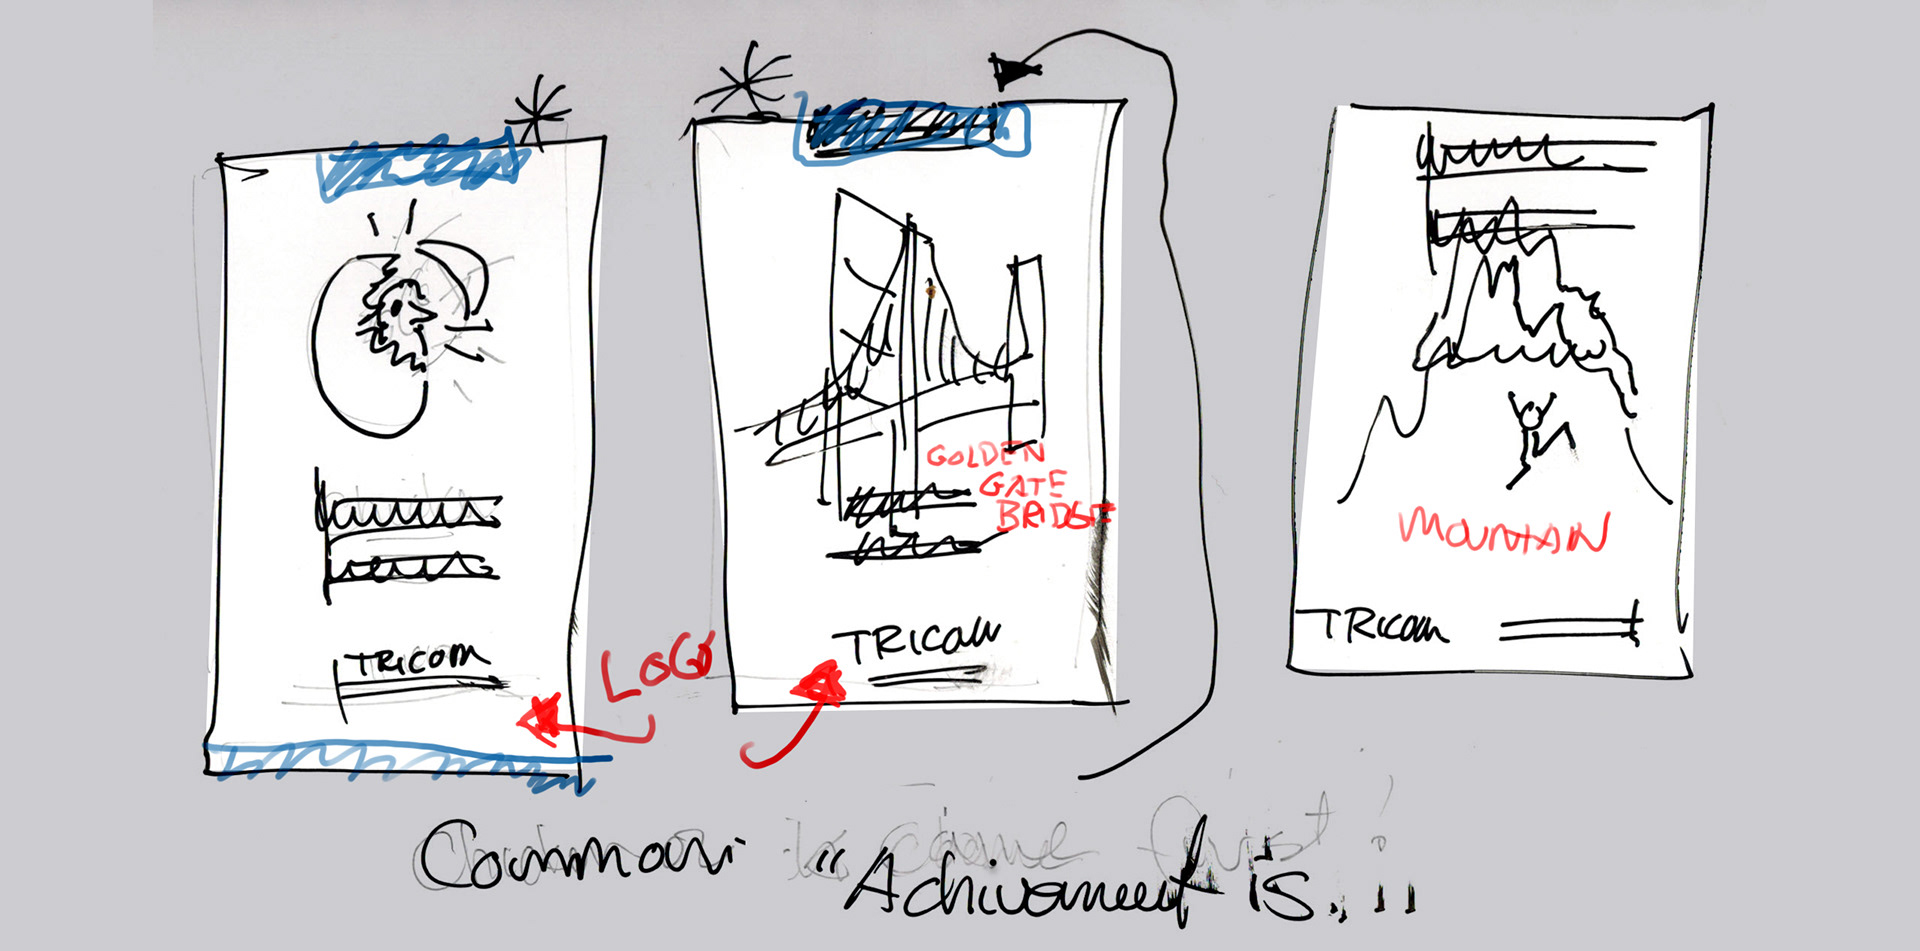 GOLDEN
GATE
BRIDGE
MOUNTAIN
TRICOM
LOGO
TRICOM
TRICOM
Common "Achivement is...